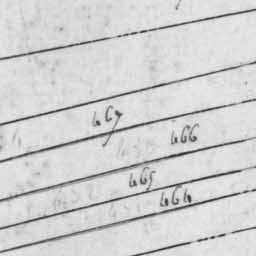 467
466
465
464